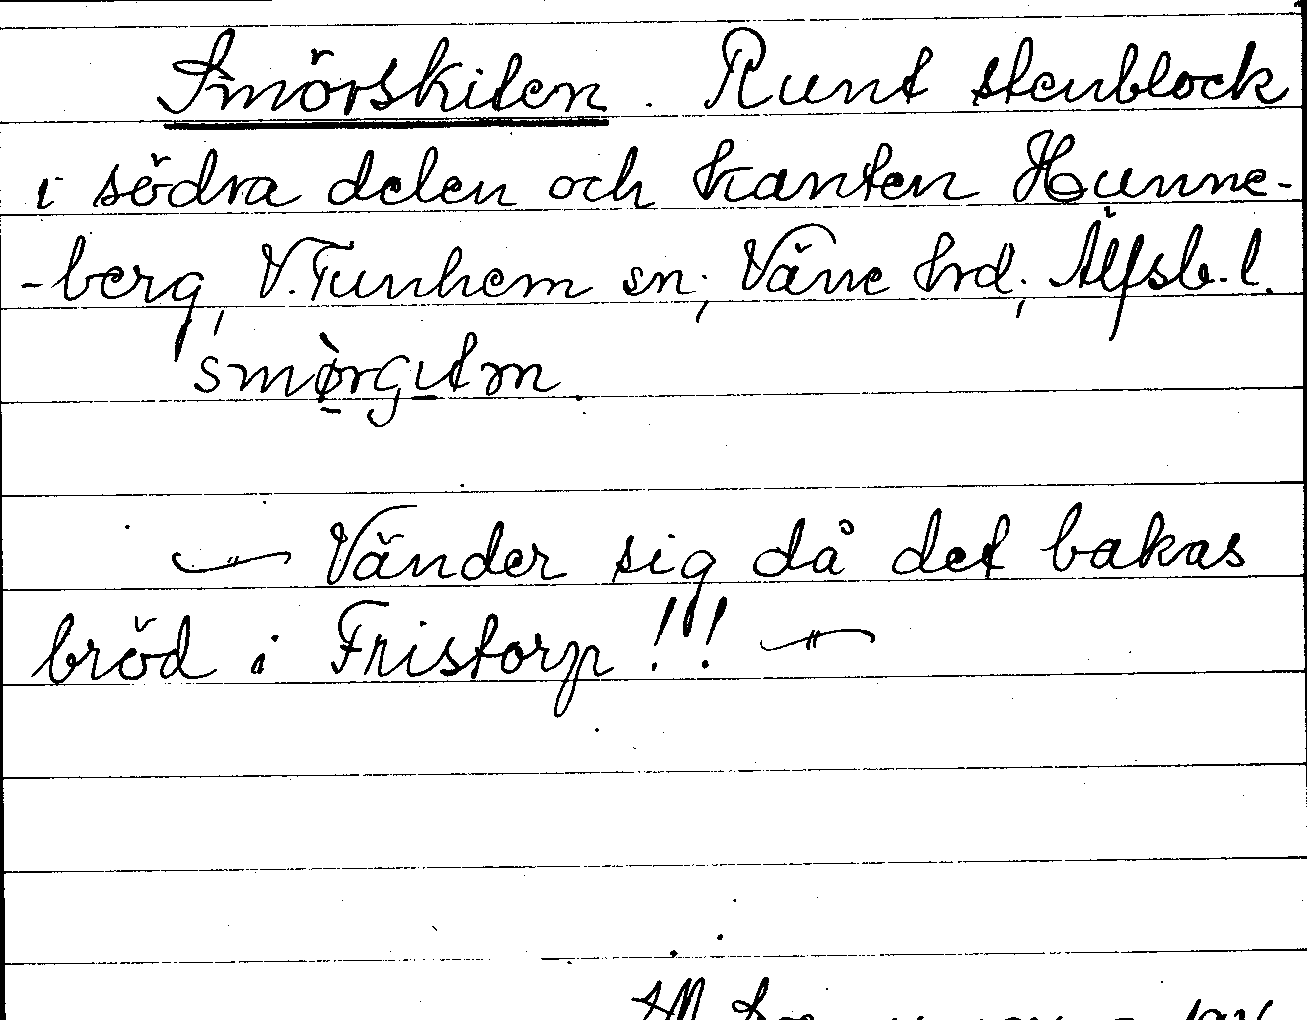 Smörskiten. Runt stenblock
i södra delen och kanten Hunne-
-berg, V. Tunhem sn; Väne hrd; Älfsb. l.
— Vänder sig då det bakas
bröd i Fristorp!!! —